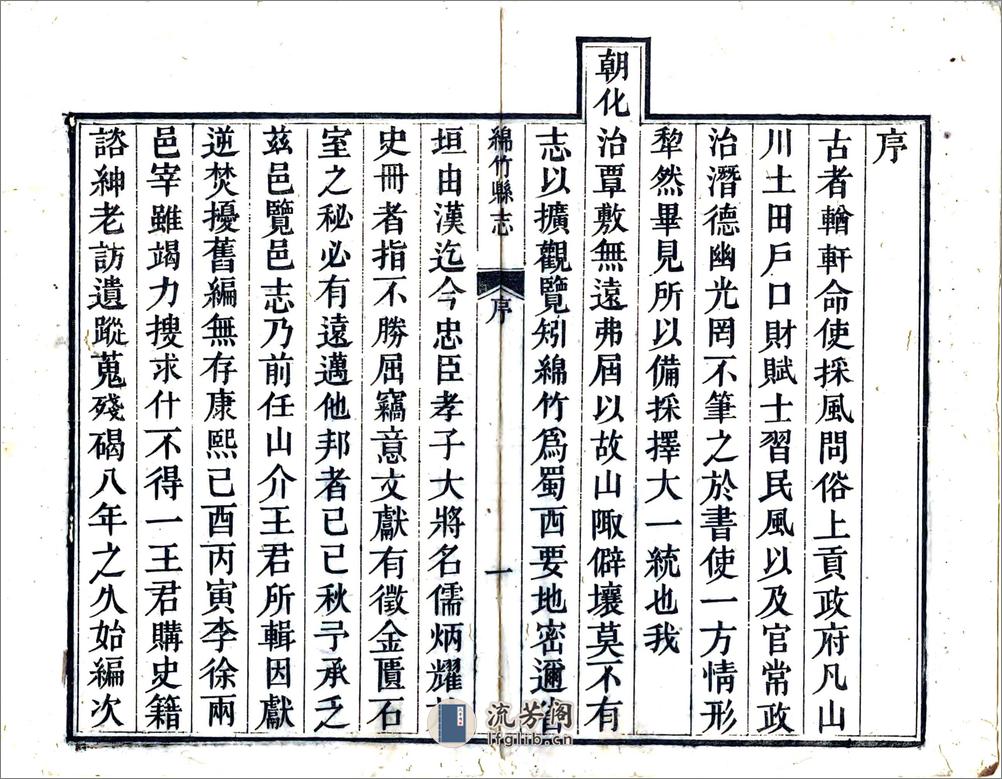 序
古者輶軒命使採風問俗上貢政府凡山
川土田戶口財賦士習民風以及官常政
治潛德幽光罔不筆之於書使一方情形
犂然畢見所以備採擇大一統也我
朝化治覃敷無遠弗屆以故山陬僻壤莫不有
志以擴觀覽矧綿竹為蜀西要地密邇省
綿竹縣志
序
一
垣由漢迄今忠臣孝子大將名儒炳耀
史冊者指不勝屈竊意文獻有徵金匱石
室之秘必有遠邁他邦者己巳秋予承乏
茲邑覽邑志乃前任山介王君所輯因獻
逆焚擾舊編無存康熙己酉丙寅李徐兩
邑宰雖竭力搜求什不得一王君購史籍
諮紳老訪遺蹤蒐殘碣八年之久始編次
流芳阁
lfglib.cn